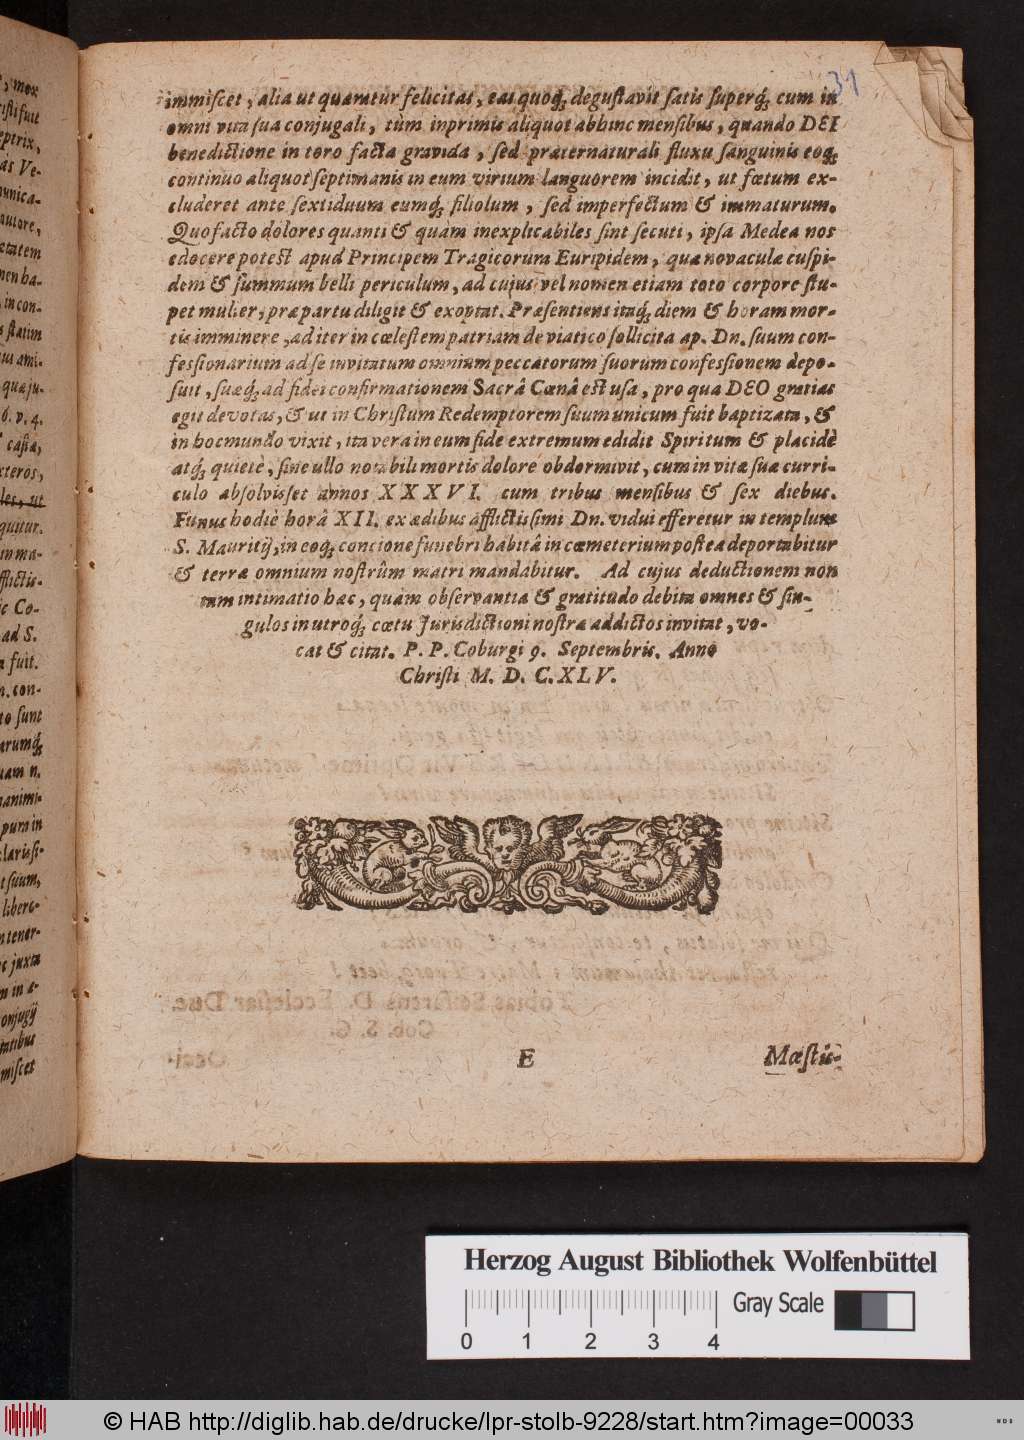 31
immiſcet, alia ut quæratur felicitas, eas quoq́; deguſtavit ſatis ſuperq́; cum in
omni vita ſua conjugali, tùm inprimis aliquot abhinc menſibus, quando DEI
benedictione in toro facta gravida, ſed præternaturali fluxu ſanguinis eoq́;
continuo aliquot ſeptimanis in eum virium languorem incidit, ut fœtum ex-
cluderet ante ſextiduum eumq́; filiolum, ſed imperfectum & immaturum.
Quo facto dolores quanti & quàm inexplicabiles ſint ſecuti, ipſa Medea nos
edocere poteſt apud Principem Tragicorum Euripidem, quæ novaculæ cuſpi-
dem & ſummum belli periculum, ad cujus vel nomen etiam toto corpore ſtu-
pet mulier, præ partu diligit & exoptat. Præſentiens itaq́; diem & horam mor-
tis imminere, ad iter in cœleſtem patriam de viatico ſollicita ap. Dn. ſuum con-
feſſionarium ad ſe invitatum omnium peccatorum ſuorum confeſſionem depo-
ſuit, ſuæq́; ad fidei confirmationem Sacrâ Cœnâ eſt uſa, pro qua DEO gratias
egit devotas, & ut in Chriſtum Redemptorem ſuum unicum fuit baptizata, &
in hoc mundo vixit, ita vera in eum fide extremum edidit Spiritum & placidè
atq́; quietè, ſine ullo notabili mortis dolore obdormivit, cum in vitæ ſuæ curri-
culo abſolviſſet annos XXXVI. cum tribus menſibus & ſex diebus.
Funus hodiè horâ XII. ex ædibus afflictiſſimi Dn. vidui efferetur in templum
S. Mauritij, in eoq́; concione funebri habitâ in cœmeterium poſtea deportabitur
& terræ omnium noſtrûm matri mandabitur. Ad cujus deductionem non
tam intimatio hæc, quàm obſervantia & gratitudo debita omnes & ſin-
gulos in utroq́; cœtu Jurisdictioni noſtræ addictos invitat, vo-
cat & citat. P. P. Coburgi 9. Septembris. Anno
Chriſti M. D. C. XLV.
E
Mœſtiſ-
Herzog August Bibliothek Wolfenbüttel
Gray Scale
0 1 2 3 4
© HAB http://diglib.hab.de/drucke/lpr-stolb-9228/start.htm?image=00033